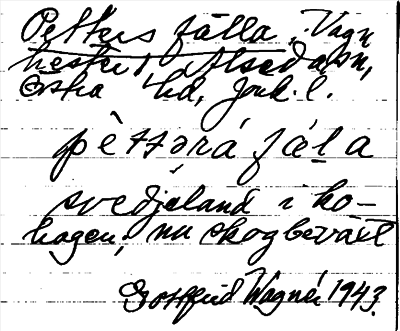 Petters fälla, Vagn
hester, Alseda sn,
Östra hd, Jönk. l.
pèttərá fäla
svedjeland i ko-
hagen; nu skogbeväxt
Gottfrid Wagnér 1943.